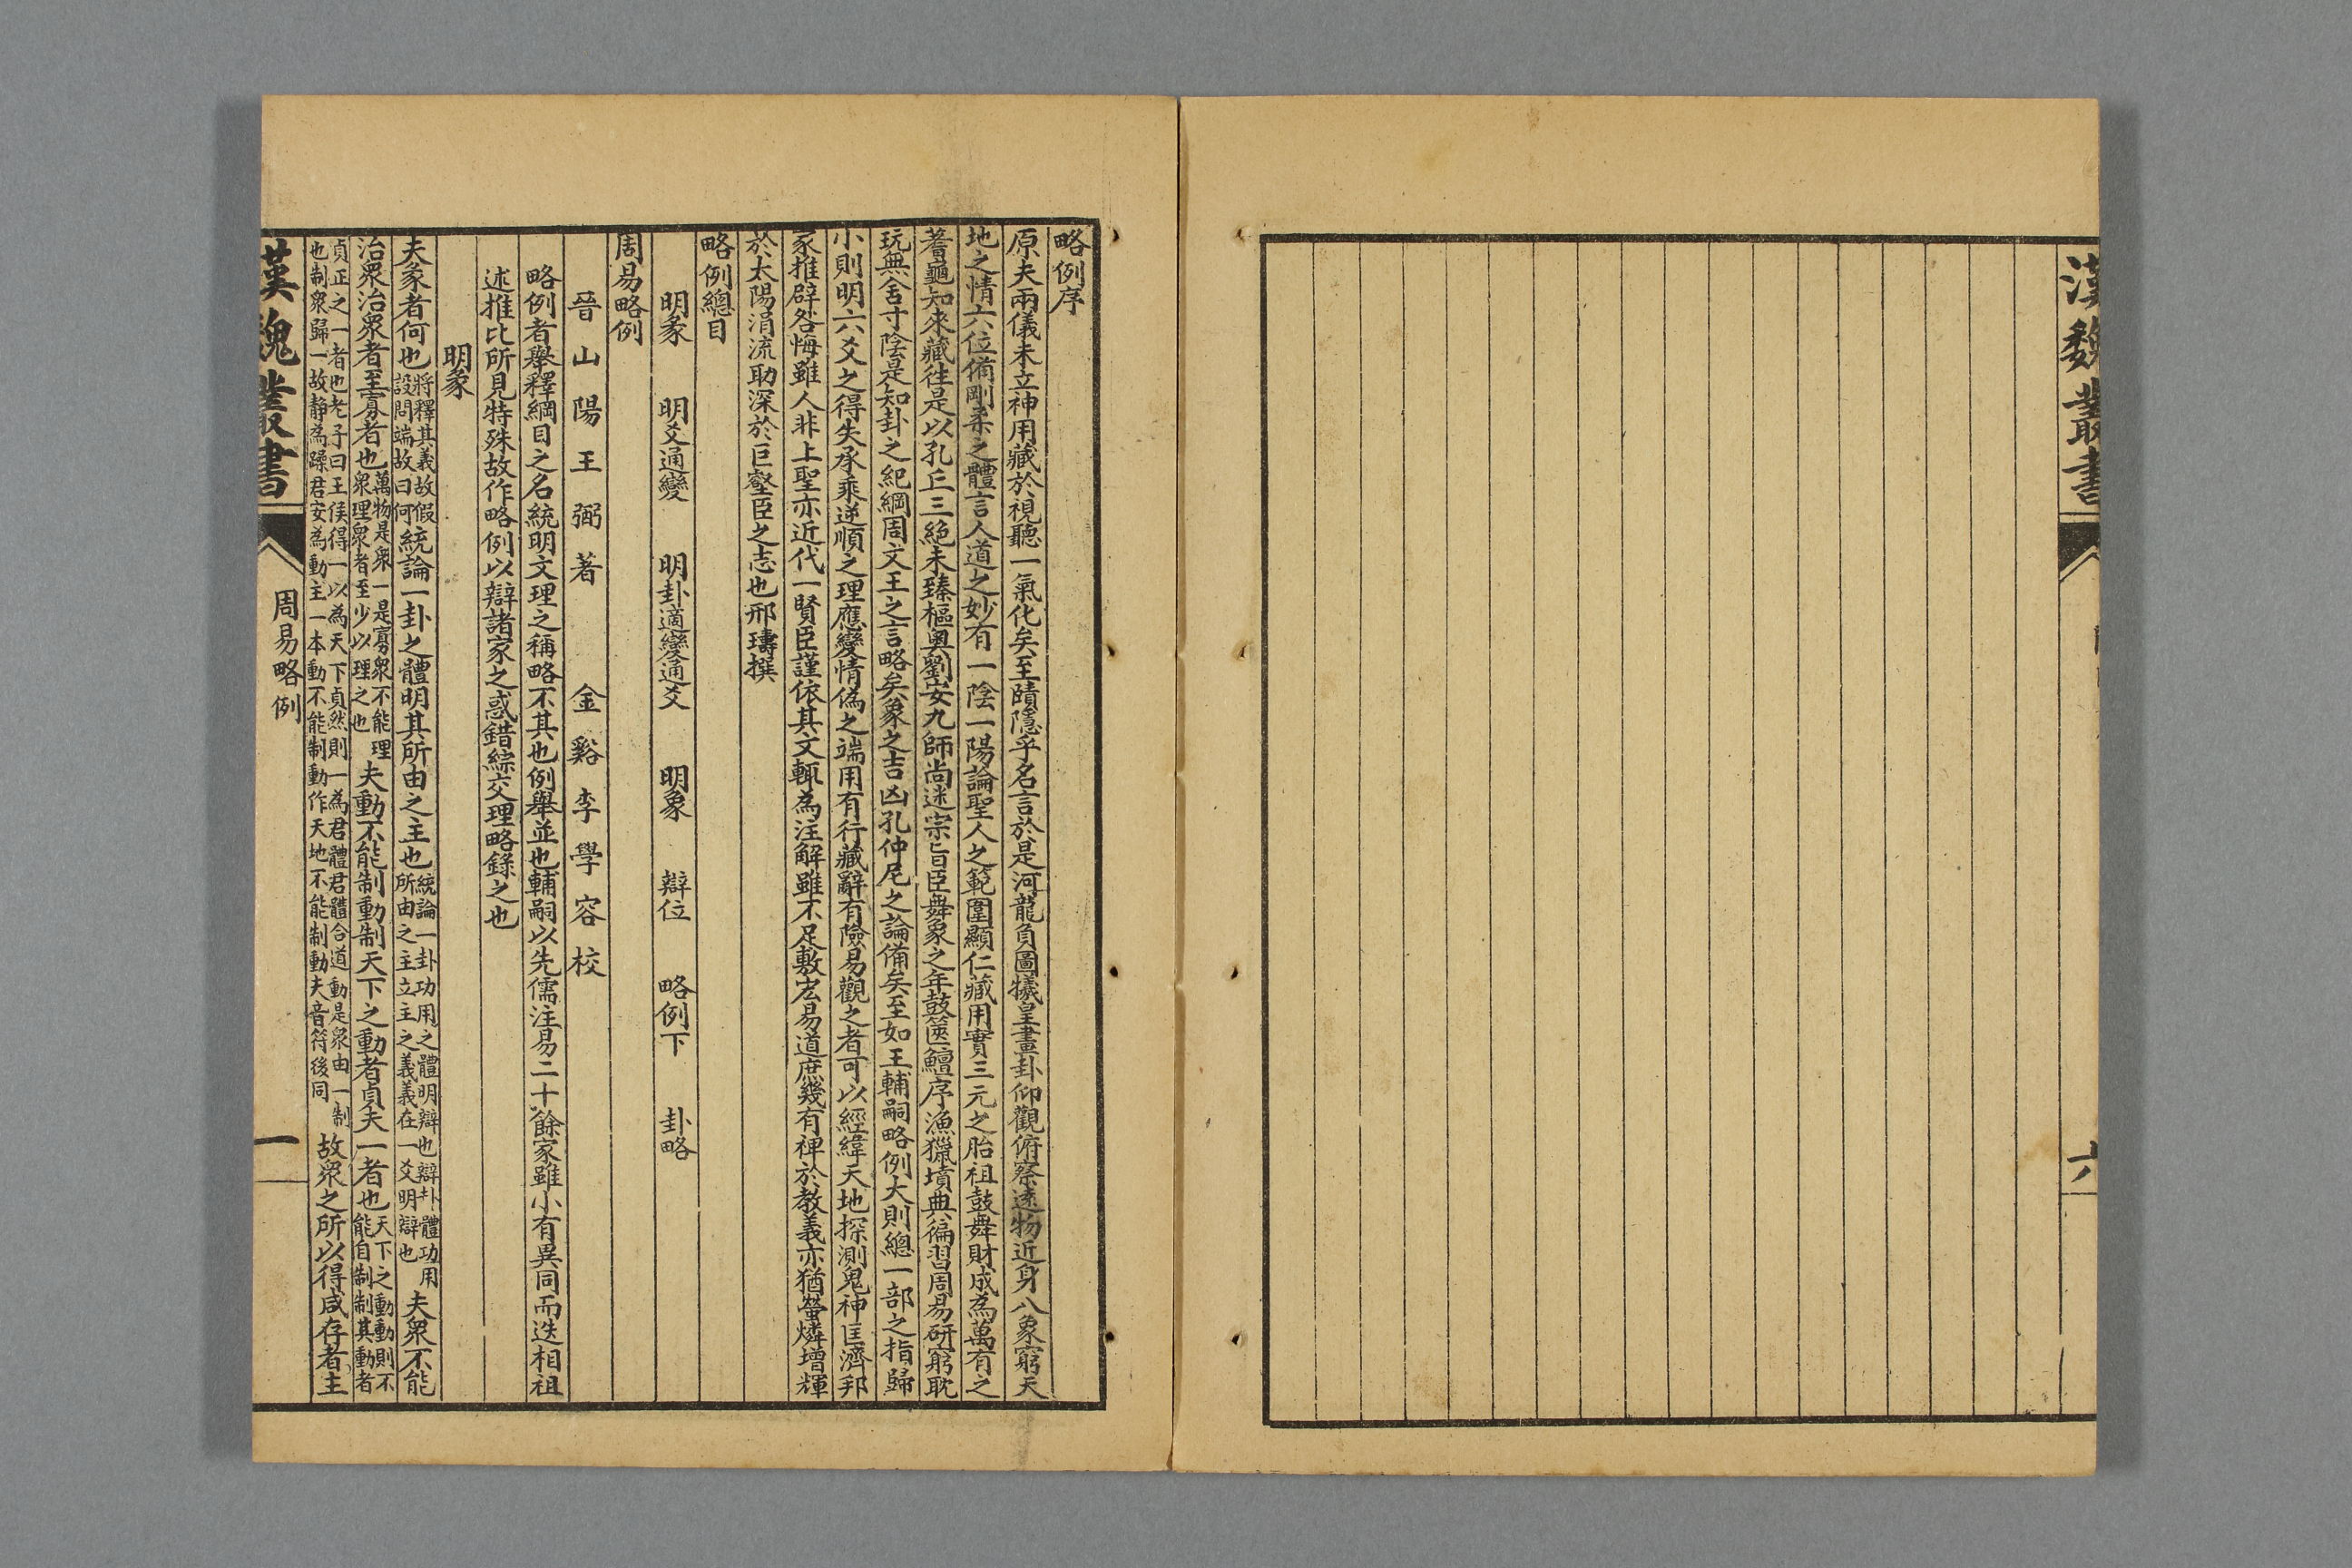 漢魏叢書
六
略例序
原夫兩儀未立神用藏於視聽一氣化矣至賾隱乎名言於是河龍負圖犧皇畫卦仰觀俯察遠物近身八象窮天
地之情六位備剛柔之體言人道之妙有一陰一陽論聖人之範圍顯仁藏用實三元之胎祖鼓舞財成為萬有之
蓍龜知來藏往是以孔丘三絕未臻樞奧劉安九師尚迷宗旨臣舞象之年鼓篋鱣序漁獵墳典徧習周易研窮耽
玩無舍寸陰是知卦之紀綱周文王之言略矣象之吉凶孔仲尼之論備矣至如王輔嗣略例大則總一部之指歸
小則明六爻之得失承乘逆順之理應變情偽之端用有行藏辭有險易觀之者可以經緯天地探測鬼神匡濟邦
家推辟咎悔雖人非上聖亦近代一賢臣謹依其文輒為注解雖不足敷宏易道庶幾有裨於教義亦猶螢燐增輝
於太陽涓流助深於巨壑臣之志也邢璹撰
略例總目
明彖　明爻通變　明卦適變通爻　明象　辯位　略例下　卦略
周易略例
晉山陽王弼著　金谿李學容校
略例者舉釋綱目之名統明文理之稱略不具也例舉並也輔嗣以先儒注易二十餘家雖小有異同而迭相祖
述推比所見特殊故作略例以辯諸家之惑錯綜文理略錄之也
明彖
夫彖者何也將釋其義故假設問端故曰何統論一卦之體明其所由之主也統論一卦功用之體明辯也辯卦體功用所由之主立主之義義在一爻明辯也夫衆不能
治衆治衆者至寡者也萬物是衆一是寡衆不能理衆理衆者至少以理之也夫動不能制動制天下之動者貞夫一者也天下之動動則不能自制制其動者
貞正之一者也老子曰王侯得一以為天下貞然則一為君體君體合道動是衆由一制也制衆歸一故靜為躁君安為動主一本動不能制動作天地不能制動夫音符後同故衆之所以得咸存者主
漢魏叢書
周易略例
一